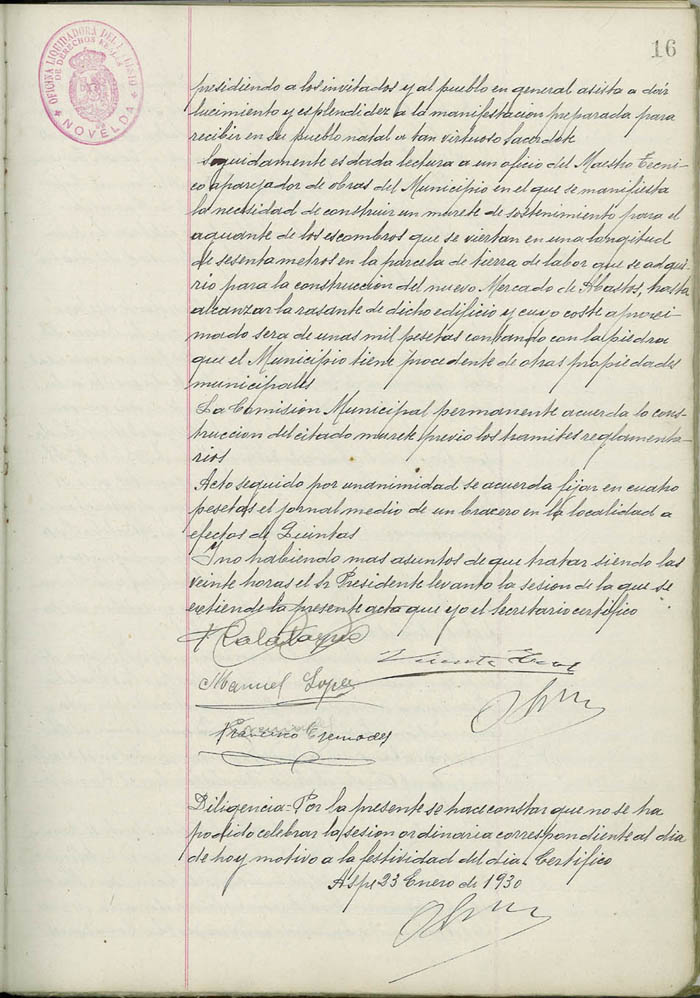 16
OFICINA LIQUIDADORA DEL
DE DERECHOS REALES
NOVELDA
presidiendo a los invitados y al pueblo en general asista a dar
lucimiento y esplendidez a la manifestacion preparada para
recibir en su pueblo natal a tan virtuoso sacerdote
Seguidamente es dada lectura a un oficio del Maestro Tecni-
co aparejador de obras del Municipio en el que se manifiesta
la necesidad de construir un murete de sostenimiento para el
aguante de los escombros que se viertan en una longitud
de sesenta metros en la parcela de tierra de labor que se adqui-
rio para la construccion del nuevo Mercado de Abastos, hasta
alcanzar la rasante de dicho edificio y cuyo coste aproxi-
mado sera de unas mil pesetas contando con la piedra
que el Municipio tiene procedente de otras propiedades
municipales
La Comision Municipal permanente acuerda la cons-
truccion del citado murete previo los tramites reglamenta-
rios
Acto seguido por unanimidad se acuerda fijar en cuatro
pesetas el jornal medio de un bracero en la localidad a
efectos de Quintas
Y no habiendo mas asuntos de que tratar siendo las
veinte horas el Sr Presidente levanto la sesion de la que se
extiende la presente acta que yo el Secretario certifico
Calatayud
Vicente
Manuel Lopez
Francisco Cremades
Diligencia = Por la presente se hace constar que no se ha
podido celebrar la sesion ordinaria correspondiente al dia
de hoy motivo a la festividad del dia. Certifico
Aspe 23 Enero de 1930